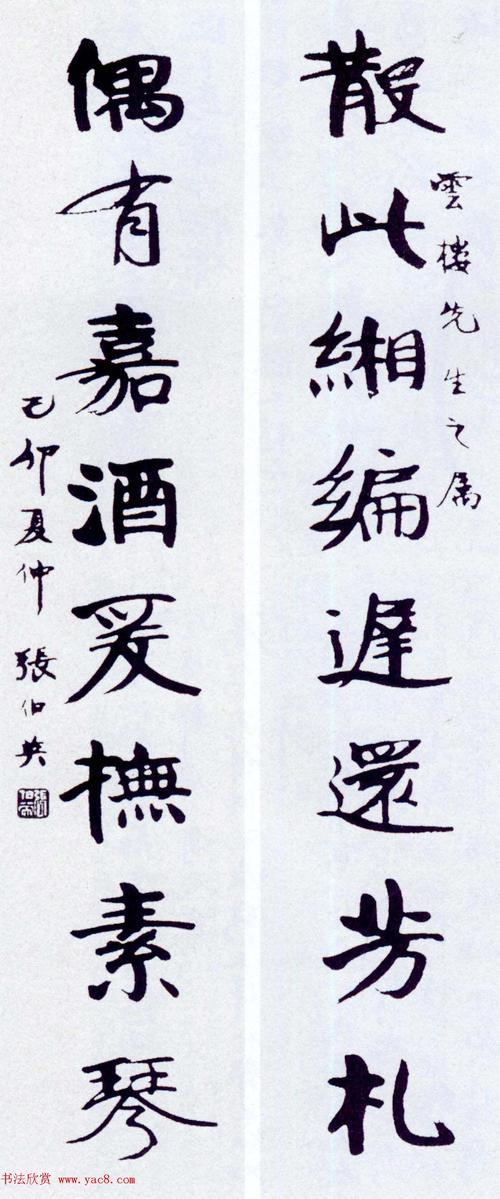 雲樓先生之属
散此緗編遲還芳札
偶有嘉酒爰撫素琴
己卯夏仲 張伯英
书法欣赏 www.yac8.com